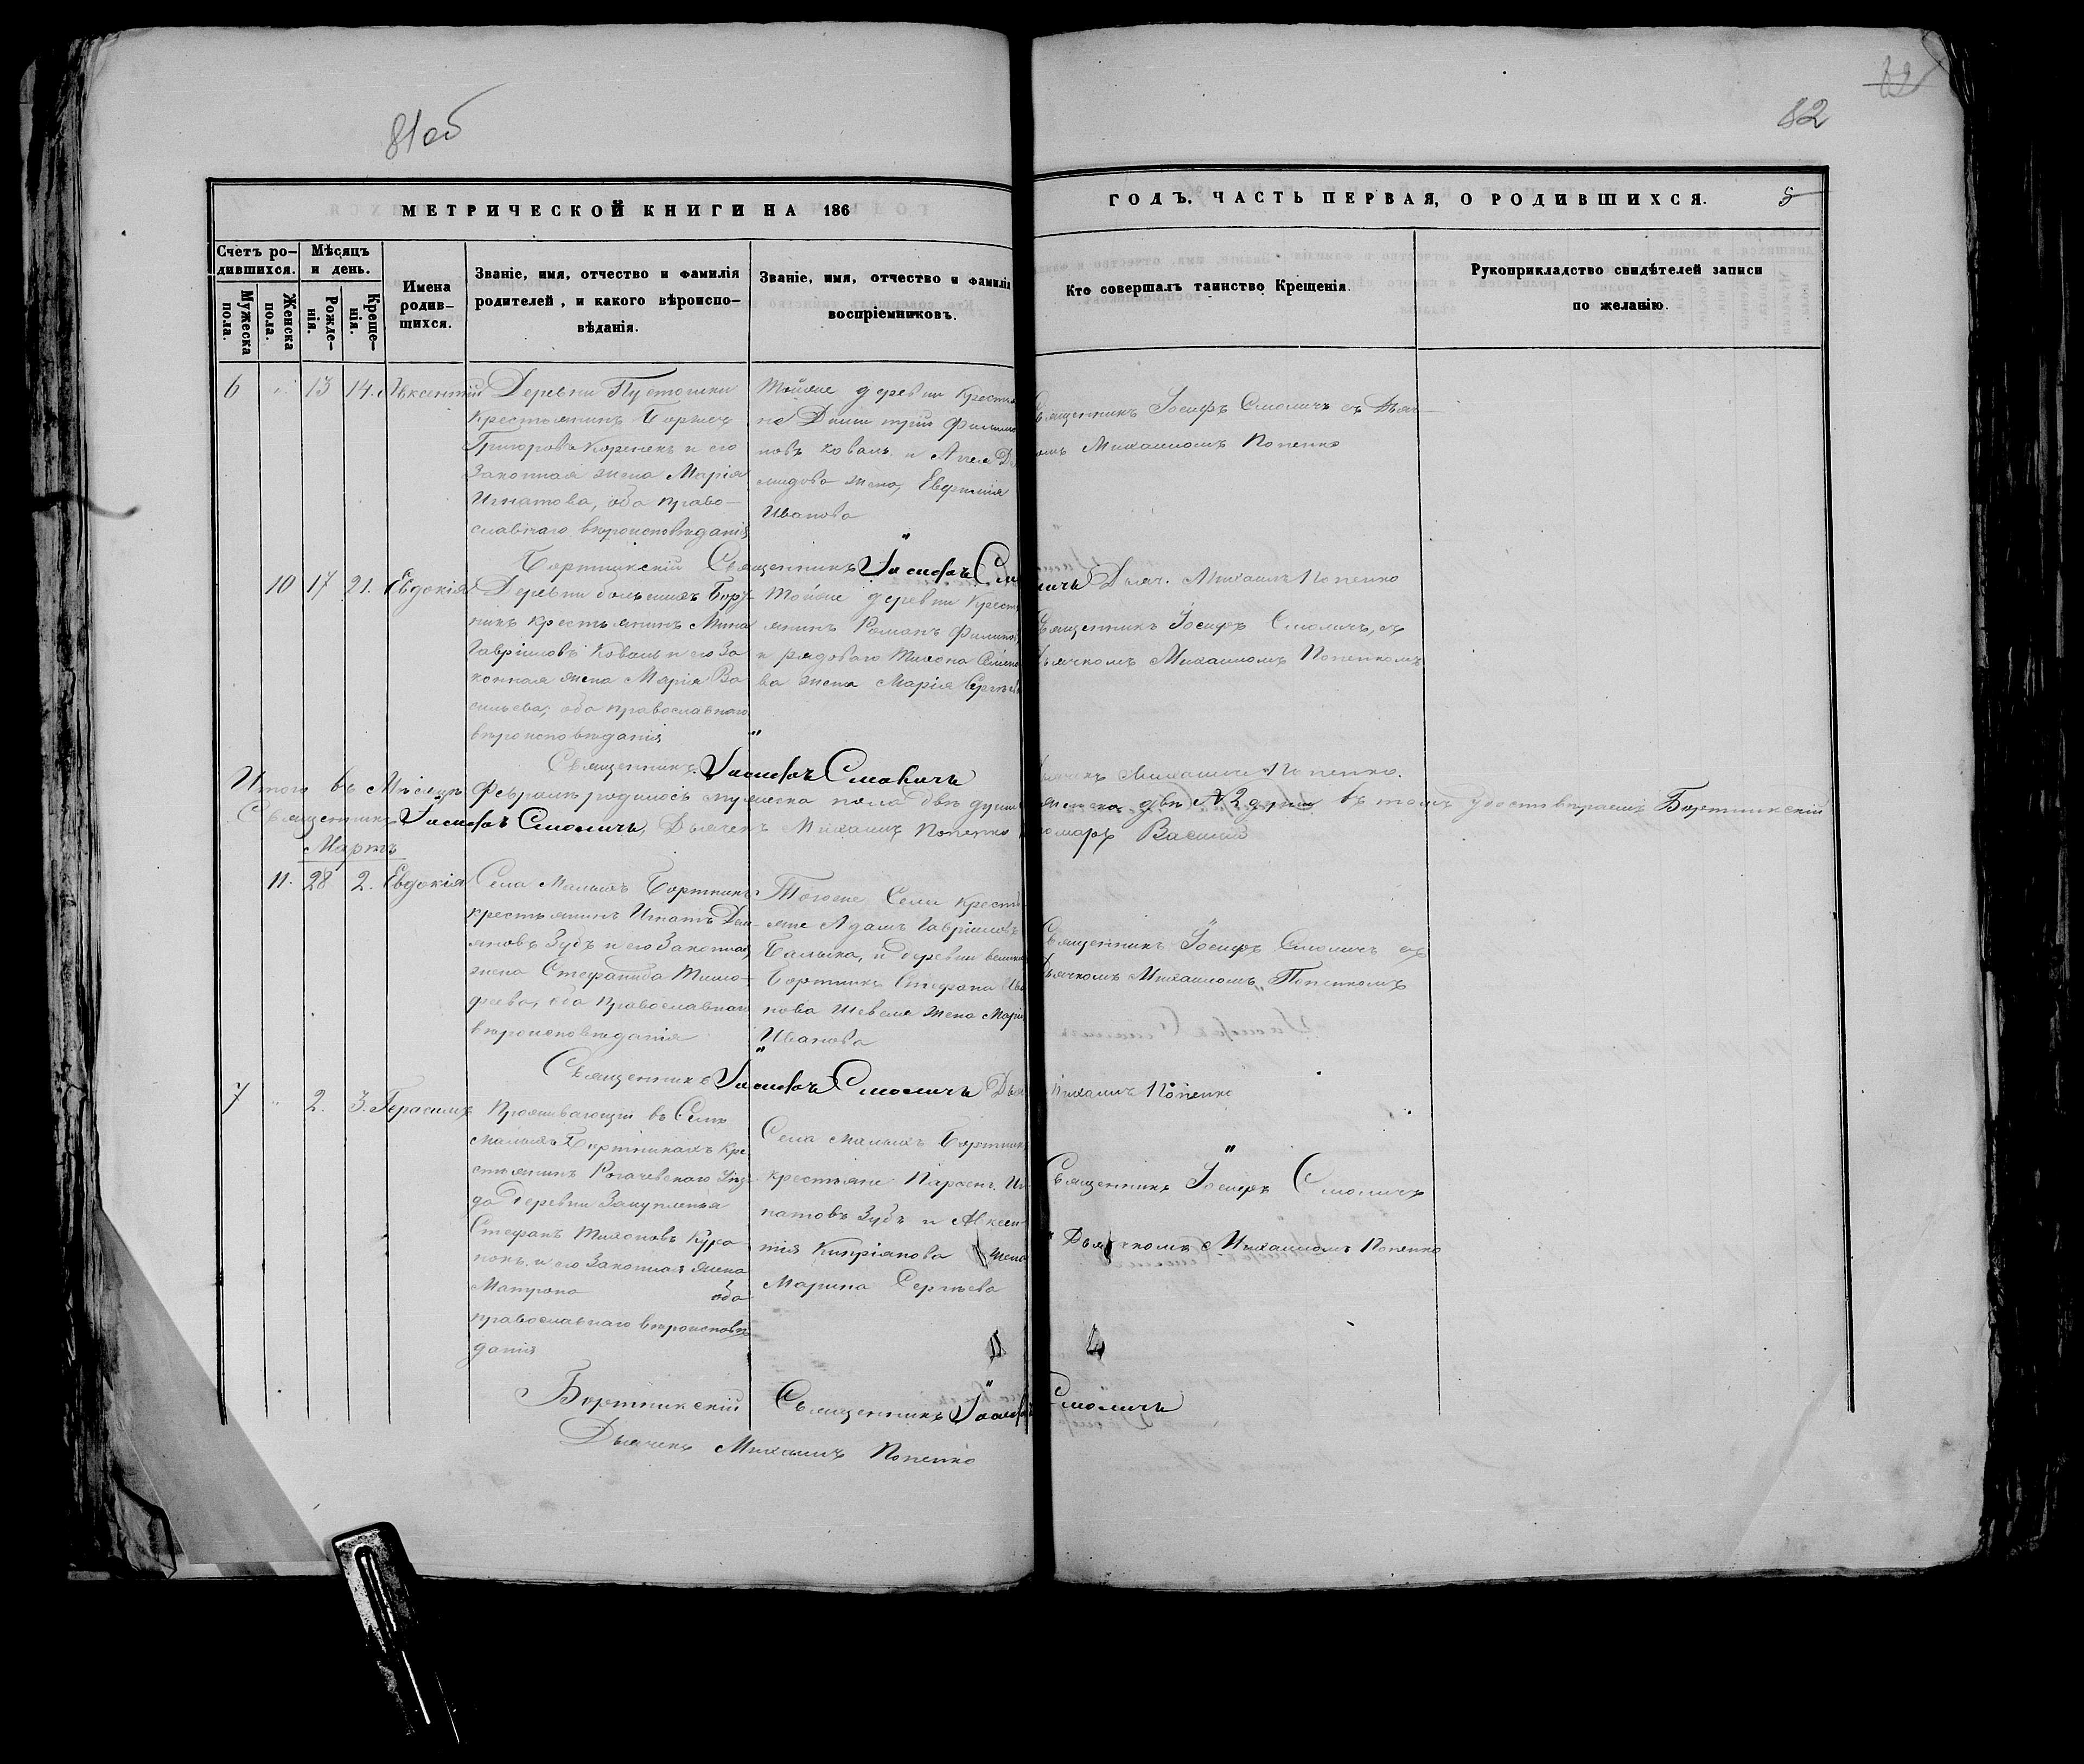 81об
82
МЕТРИЧЕСКОЙ КНИГИ НА 186
ГОДЪ. ЧАСТЬ ПЕРВАЯ, О РОДИВШИХСЯ.
5
Счетъ ро-
дившихся.
Мужеска пола.
Женска пола.
Мѣсяцъ
и день.
Рожде-
нія.
Креще-
нія.
Имена
родив-
шихся.
Званіе, имя, отчество и фамилія
родителей, и какого вѣроиспо-
вѣданія.
Званіе, имя, отчество и фамилія
воспріемниковъ.
Кто совершалъ таинство Крещенія.
Рукоприкладство свидѣтелей записи
по желанію.
6 " 13 14. Авксентій
Деревни Пустошки
крестьянинъ
Григоровъ и его
Законная жена Марія
Игнатова, оба право-
славнаго вѣроисповѣданія
Тойже деревни Крестья
Филимо
новъ коваль и
мидова жена, Евфимія
Иванова
Священникъ Іосифъ Смоличъ съ Дьяч-
омъ Михаиломъ Попенко
Бортникскій Священникъ Іосифъ Смоличъ Дьяч. Михаилъ Попенко
10 17 21. Евдокія
Деревни большихъ Борт-
никъ крестьянинъ Мина
Гавріиловъ Коваль и его За
конная жена Марія Ва
сильева, оба православнаго
вѣроисповѣданія
Тойже деревни Крест
янинъ Романъ
и рядоваго Тихона Семено
ва жена Марія
Священникъ Іосифъ Смоличъ, съ
Дьячкомъ Михаиломъ Попенкомъ
Священникъ Іосифъ Смоличъ
Дьячекъ Михаилъ Попенко.
Итого въ Мѣсяцѣ Февралѣ родилось мужеска пола двѣ души женска двѣ души въ томъ удостовѣряемъ Бортникскій
Священникъ Іосифъ Смоличъ, Дьячекъ Михаилъ Попенко
номарь Василій
Мартъ
11. 28 2. Евдокія
Села Малыхъ Бортникъ
крестьянинъ Игнатъ Дем-
яновъ Зубъ и его Законная
жена Стефанида Тимо-
феева, оба Православнаго
вѣроисповѣданія
Тогоже Села крестья
яне Адамъ Гавріиловъ
и деревни великихъ
Бортникъ Стефана Ива
нова жена Марія
Иванова
Священникъ Іосифъ Смоличъ съ
Дьячкомъ Михаиломъ Попенкомъ
Священникъ Іосифъ Смоличъ Дья
Михаилъ Попенко
7 " 2. 3. Герасимъ
Проживающій въ Селѣ
Малыхъ Бортникахъ кре
стьянинъ Рогачевскаго Уѣз
да Деревни
Стефанъ Тихоновъ
и его Законная жена
Матрона оба
православнаго вѣроисповѣ
данія
Села малыхъ Бортникъ
крестьяне Иг
натовъ Зубъ и Авксен
тія Кипріянова жена
Марина Сергѣева
Священникъ Іосифъ Смоличъ
Дьячкомъ Михаиломъ Попенко
Бортникскій Священникъ Іосифъ Смоличъ
Дьячекъ Михаилъ Попенко